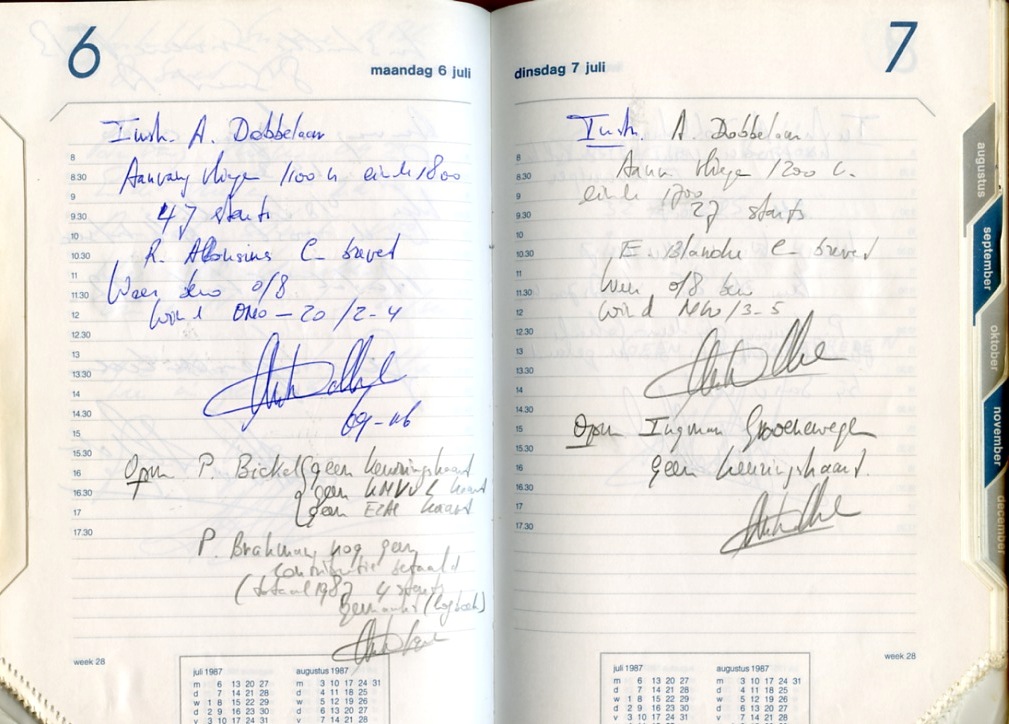 6
maandag 6 juli
Instr. A. Dobbelaar
8
8.30
Aanvang vliegen 1100 u einde 1800
9
9.30
47 starts
10
10.30
R. Aloysius C-brevet
11
11.30
Weer bew 0/8
12
wind ONO - 20 / 2-4
12.30
13
13.30
14
14.30
15
15.30
16
Opm P. Bickel geen keuringskaart
16.30
geen KNVvL kaart
17
geen EZAC kaart
17.30
P. Brakman nog geen
contributie betaald
(totaal 1987 4 starts
gemaakt (logboek)
week 28
juli 1987 augustus 1987
m 6 13 20 27 m 3 10 17 24 31
d 7 14 21 28 d 4 11 18 25
w 1 8 15 22 29 w 5 12 19 26
d 2 9 16 23 30 d 6 13 20 27
v 3 10 17 24 31 v 7 14 21 28
7
dinsdag 7 juli
Instr. A. Dobbelaar
8
8.30
Aanv. vliegen 1200 u.
9
einde 1700
9.30
27 starts
10
10.30
E. Blanche C-brevet
11
11.30
Weer 0/8 bew
12
wind NW / 3-5
12.30
13
13.30
14
14.30
15
Opm Ingman Groenewegen
15.30
16
geen keuringskaart.
16.30
17
17.30
week 28
juli 1987 augustus 1987
m 6 13 20 27 m 3 10 17 24 31
d 7 14 21 28 d 4 11 18 25
w 1 8 15 22 29 w 5 12 19 26
d 2 9 16 23 30 d 6 13 20 27
v 3 10 17 24 31 v 7 14 21 28
augustus
september
oktober
november
december